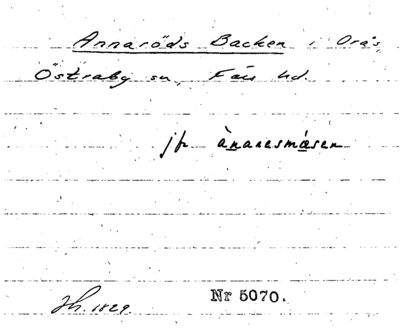 Annaröds Backen i Orås,
Östraby sn, Färs hd.
jfr ànaresmåsen
Jh. 1829. Nr 5070.